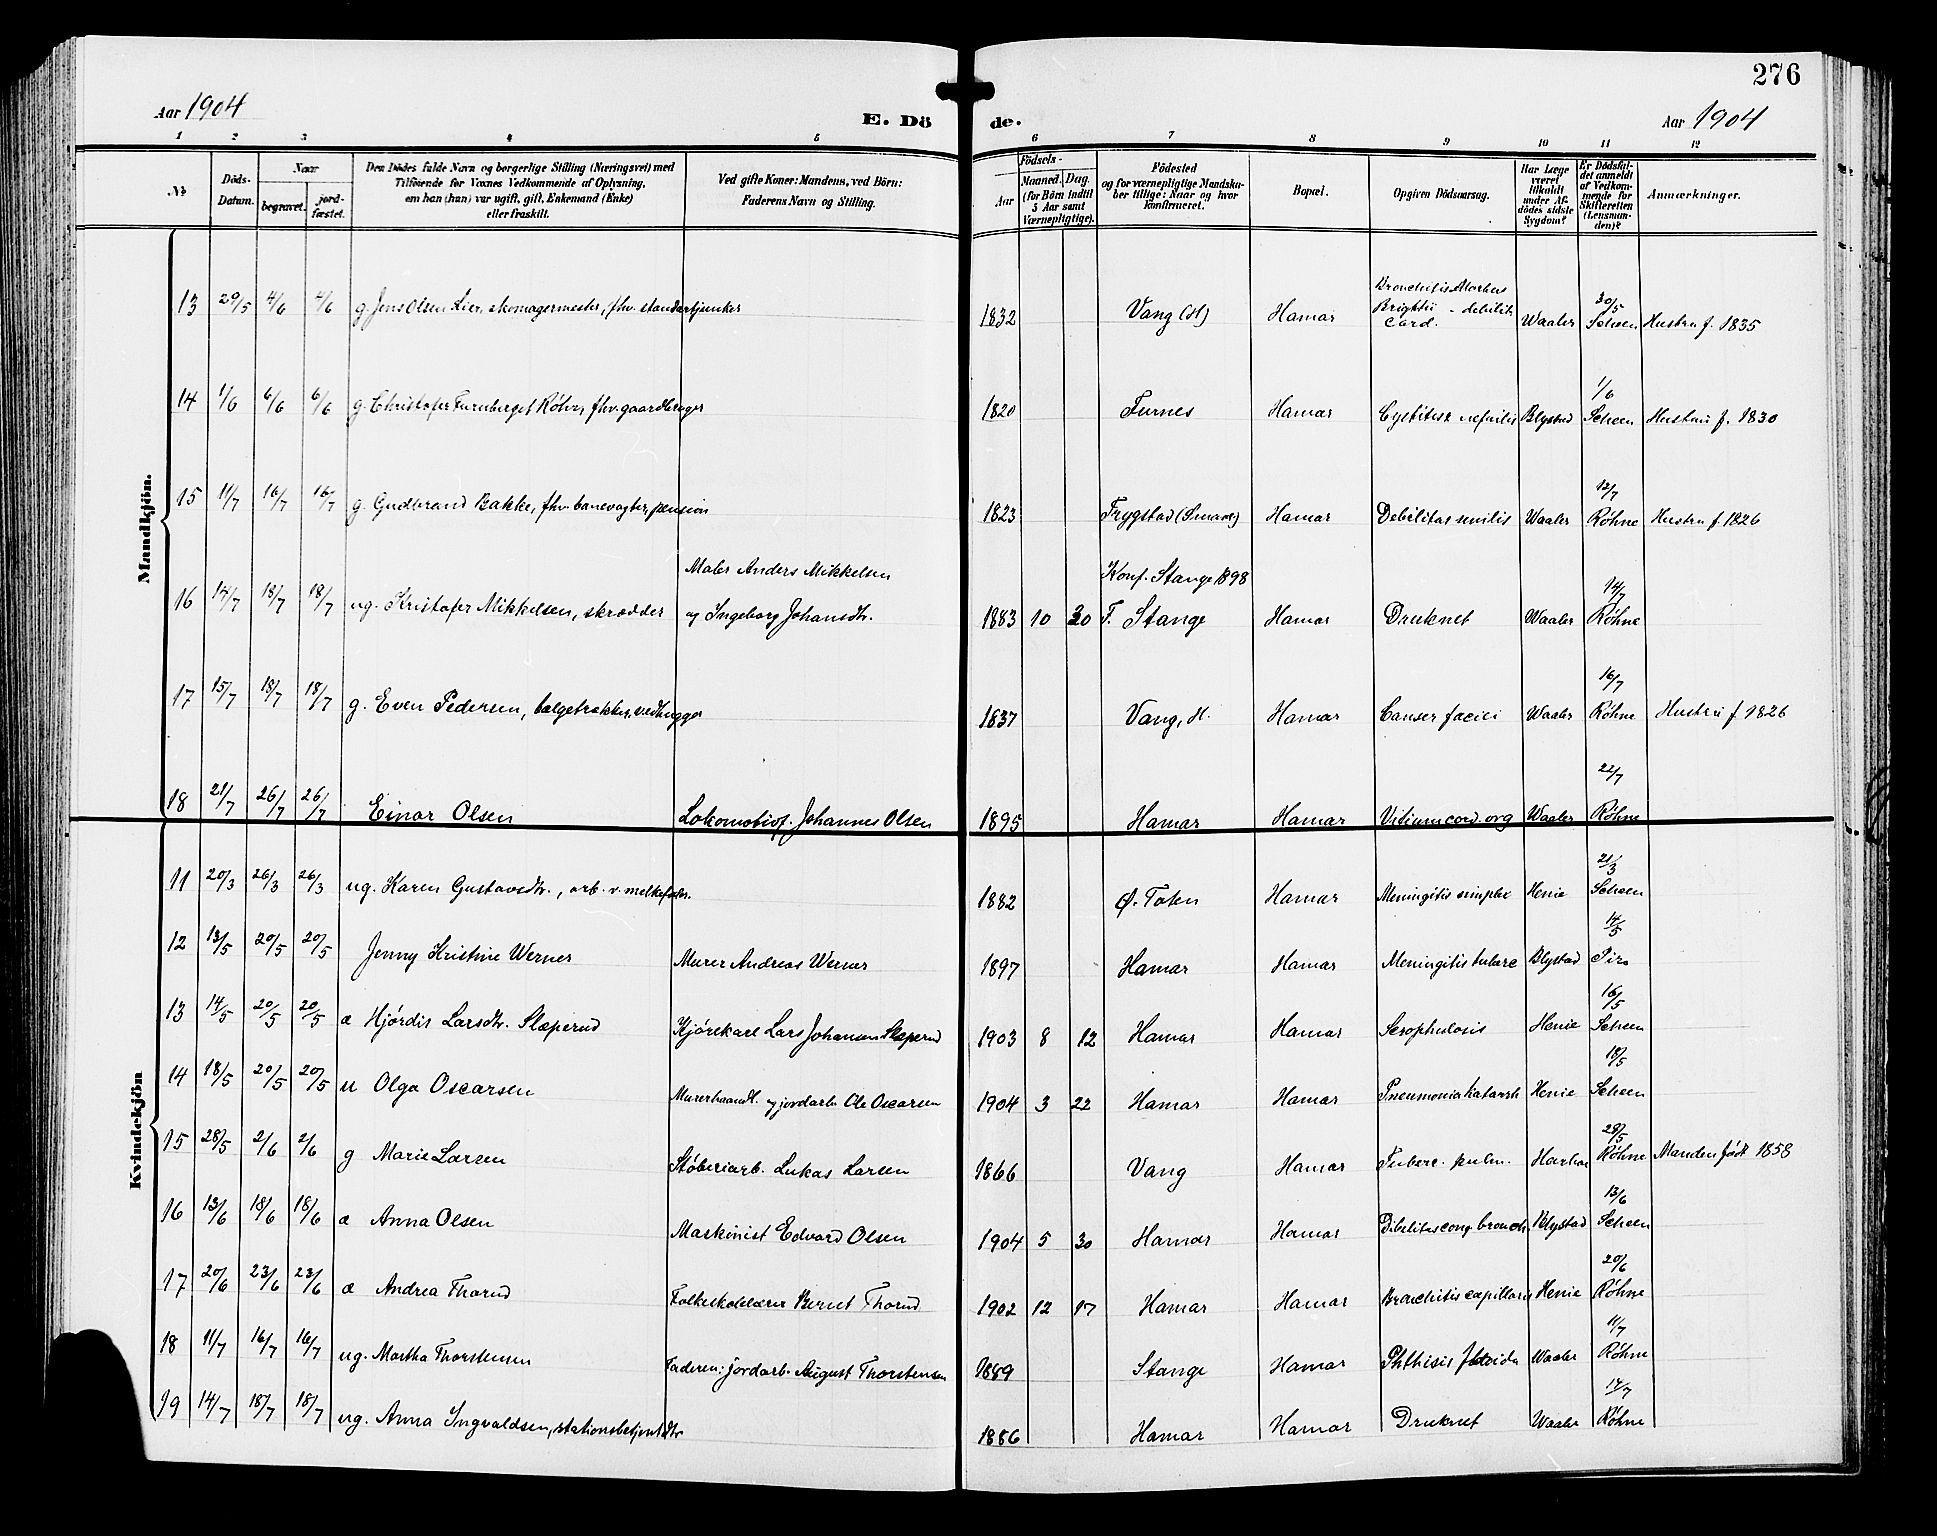 276
Aar 1904
E. Döde.
Aar 1904
1 2 3 4 5 6 7 8 9 10 11 12
№
Döds-Datum.
Naar
begravet.
jord-fæstet.
Den Dödes fulde Navn og borgerlige Stilling (Næringsvei) med
Tilföiende for Voxnes Vedkommende af Oplysning,
om han (hun) var ugift, gift, Enkemand (Enke)
eller fraskilt.
Ved gifte Koner: Mandens, ved Börn:
Faderens Navn og Stilling.
Födsels-
Aar
Maaned. Dag.
(for Börn indtil
5 Aar samt
Værnepligtige).
Födested
og for værnepligtige Mandska-
ber tillige: Naar og hvor
konfirmeret.
Bopæl.
Opgiven Dödsaarsag.
Har Læge
været
tilkaldt
under Af-
dödes sidste
Sygdom?
Er Dödsfal-
det anmeldt
af Vedkom-
mende for
Skifteretten
(Lensman-
den)?
Anmærkninger.
Mandkjön.
13 29/5 4/6 4/6 g. Jens Olsen Lier, skomagermester, fhv. standartjunker 1832 Vang (H) Hamar Bronchitis Morbus Brightii - debilit. Card. Waaler 30/5 Scheen Hustru f. 1835
14 1/6 6/6 6/6 g. Christofer Furuberget Röhne, fhv. gaardbruger 1820 Furnes Hamar Cystitis Blystad 1/6 Scheen Hustru f. 1830
15 11/7 16/7 16/7 g. Gudbrand Bakke, fhv. banevogter, pension 1823 Trygstad (Smaal) Hamar Debilitas senilis Waaler 12/7 Röhne Hustru f. 1826
16 14/7 18/7 18/7 ug. Kristofer Mikkelsen, skrædder Maler Anders Mikkelsen og Ingeborg Johansdtr. 1883 10 30 Konf. Stange 1898 F. Stange Hamar Druknet Waaler 14/7 Röhne
17 15/7 18/7 18/7 g. Even Pedersen, bælgetrækker, vedhugger 1837 Vang, H. Hamar Canser faciei Waaler 16/7 Röhne Hustru f. 1826
18 21/7 26/7 26/7 Einar Olsen Lokomotivf. Johannes Olsen 1895 Hamar Hamar Vitium cord. org Waaler 22/7 Röhne
Kvindekjön
11 20/3 26/3 26/3 ug. Karen Gustavsdtr., arb. v. melkefabr. 1882 Ø. Toten Hamar Meningitis simplex Henie 21/3 Scheen
12 13/5 20/5 20/5 Jenny Kristine Werner Murer Andreas Werner 1897 Hamar Hamar Meningitis tuberc Blystad 14/5 Piro
13 14/5 20/5 20/5 æ Hjördis Larsdtr. Slæperud Kjörekarl Lars Johansen Slæperud 1903 8 12 Hamar Hamar Scrophulosis Henie 16/5 Scheen
14 18/5 20/5 20/5 u Olga Oscarsen Murerhaandl. og jordarb. Ole Oscarsen 1904 3 22 Hamar Hamar Pneumonia katarrh Henie 18/5 Scheen
15 28/5 2/6 2/6 g Marie Larsen Stöberiarb. Lukas Larsen 1866 Vang Hamar Tuberc. pulm. 29/5 Röhne Manden född 1858
16 13/6 18/6 18/6 æ Anna Olsen Maskinist Edvard Olsen 1904 5 30 Hamar Hamar Debilitas cong. bronch. Blystad 13/6 Scheen
17 20/6 23/6 23/6 æ Andrea Thorud Folkeskolelærer Bernt Thorud 1902 12 17 Hamar Hamar Bronchitis capillaris Henie 20/6 Röhne
18 11/7 16/7 16/7 ug. Martha Thorstensen Faderen: jordarb. August Thorstensen 1889 Stange Hamar Phthisis florida Waaler 11/7 Röhne
19 14/7 18/7 18/7 ug. Anna Ingvaldsen, stationsbetjentdtr 1886 Hamar Hamar Druknet Waaler 14/7 Röhne